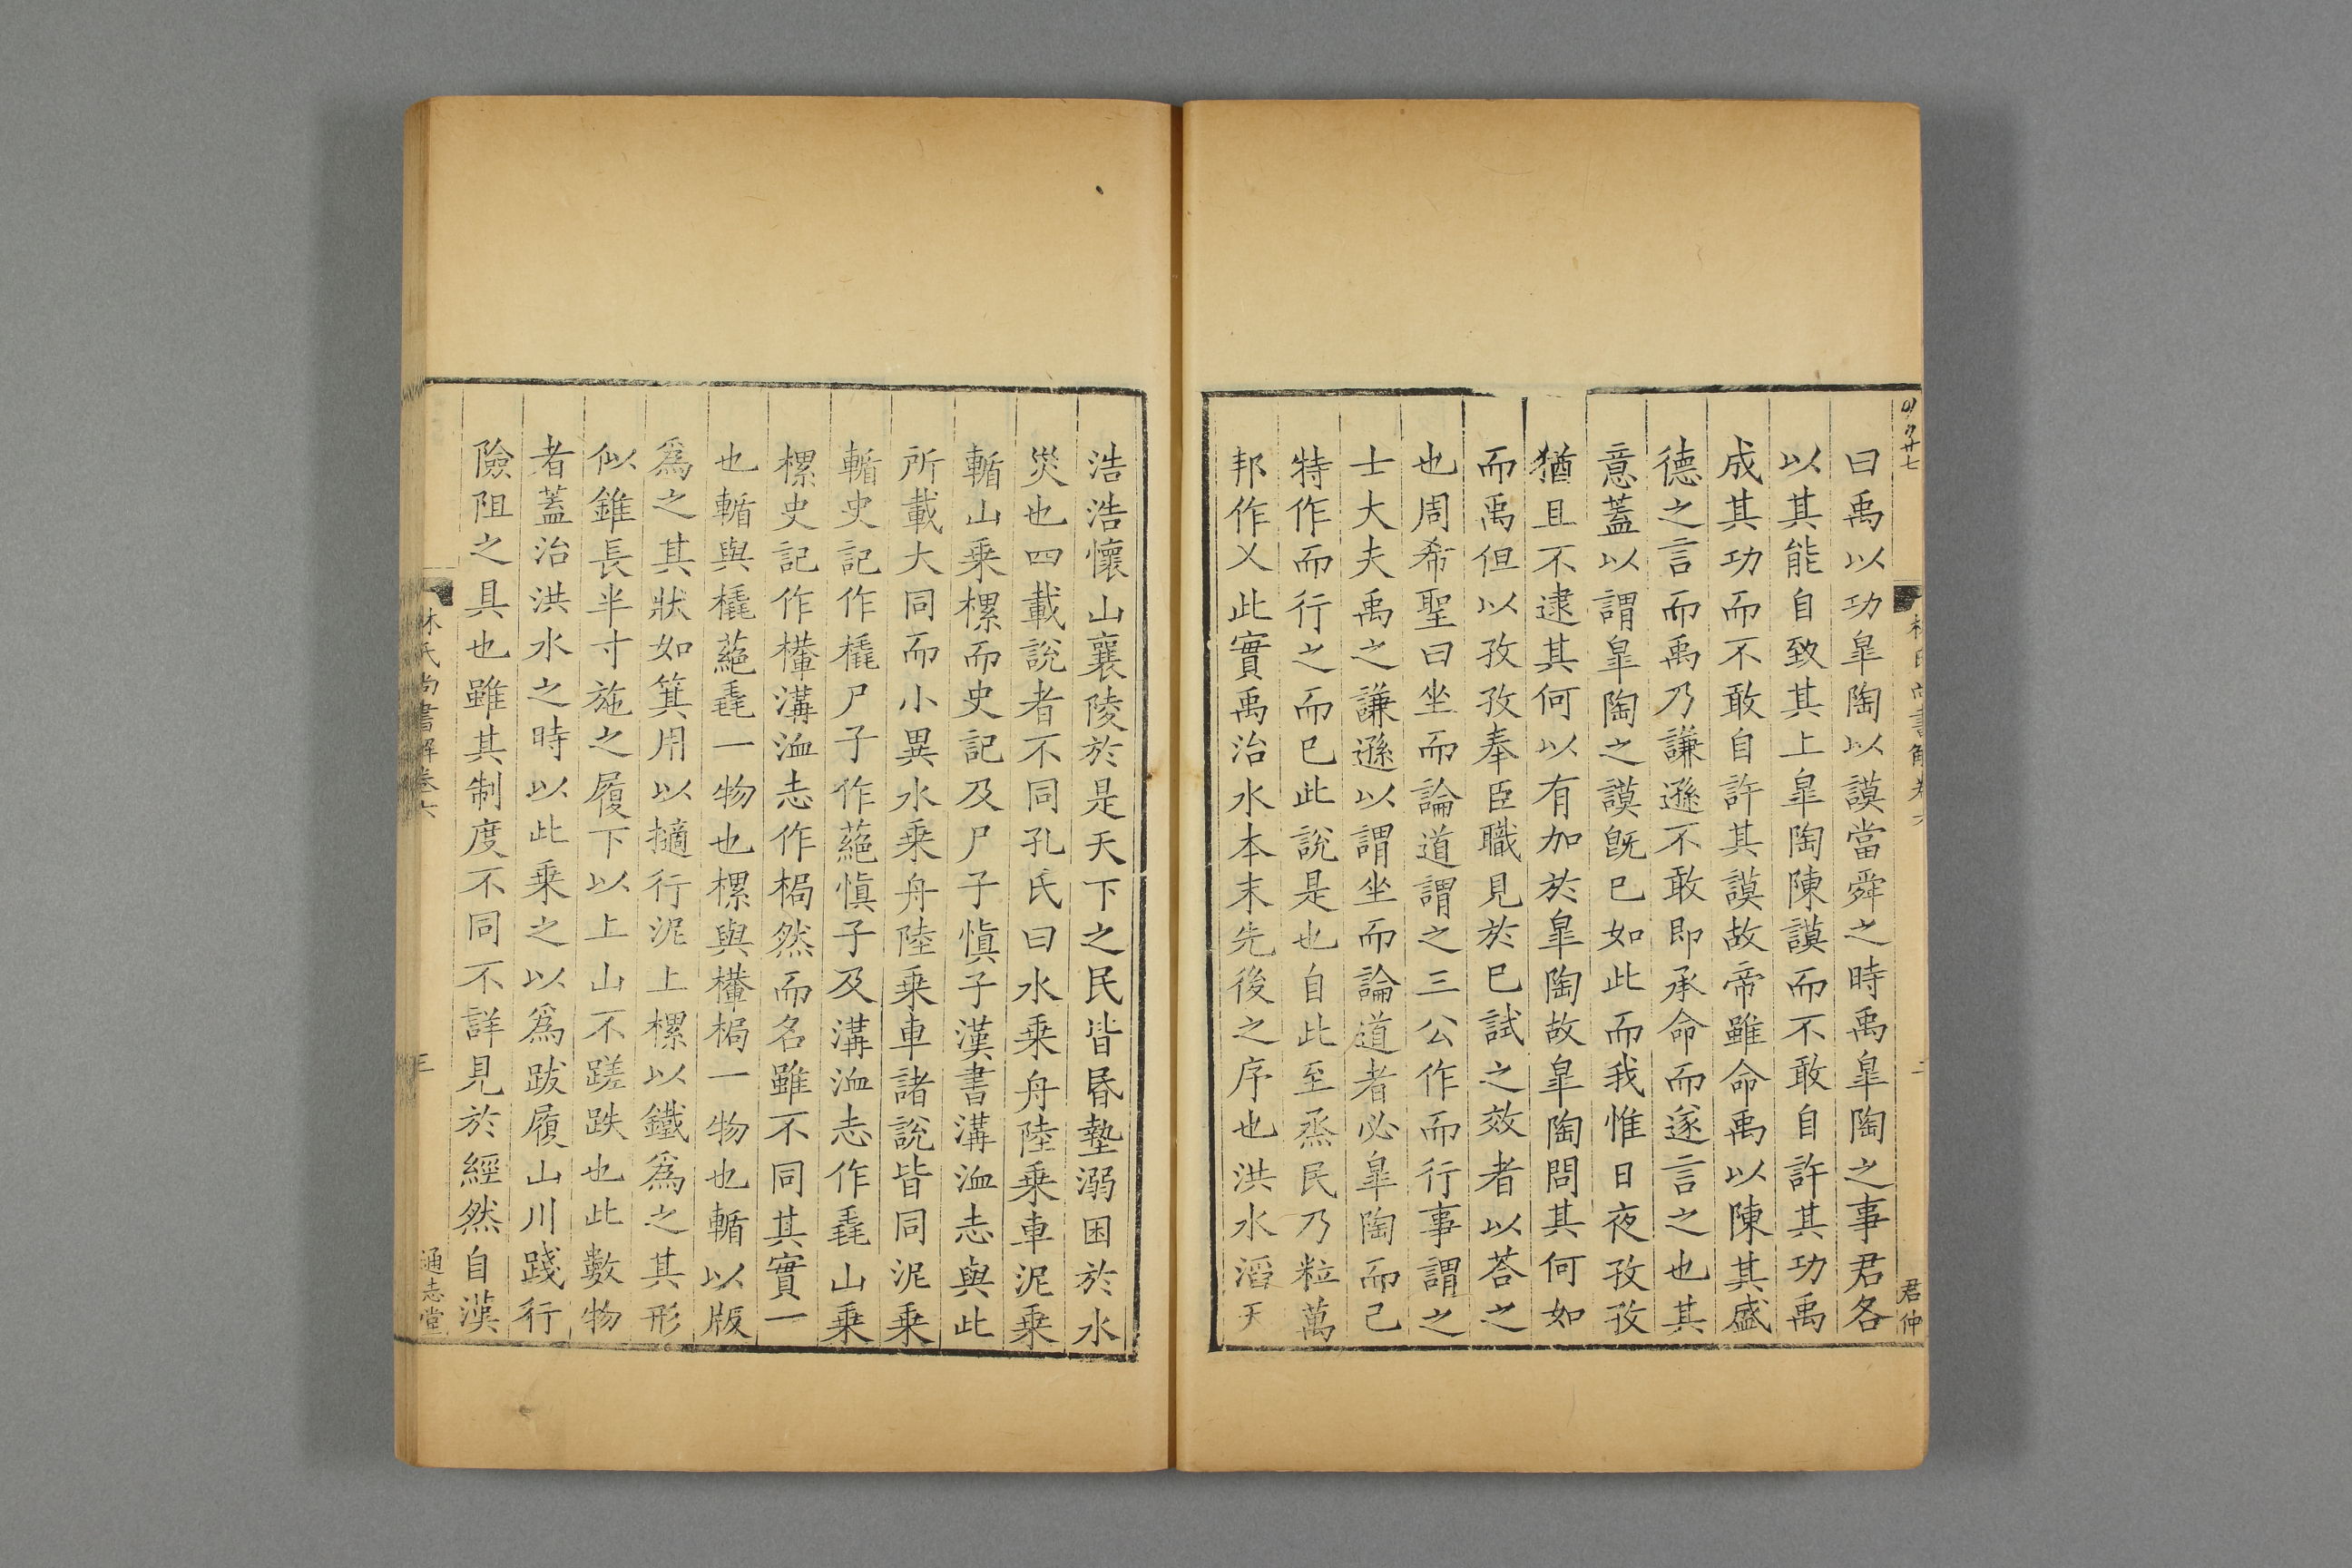 曰禹以功皐陶以謨當舜之時禹皐陶之事君各
以其能自致其上皐陶陳謨而不敢自許其功禹
成其功而不敢自許其謨故帝雖命禹以陳其盛
德之言而禹乃謙遜不敢即承命而遂言之也其
意蓋以謂皐陶之謨旣已如此而我惟日夜孜孜
猶且不逮其何以有加於皐陶故皐陶問其何如
而禹但以孜孜奉臣職見於已試之效者以荅之
也周希聖曰坐而論道謂之三公作而行事謂之
士大夫禹之謙遜以謂坐而論道者必皐陶而已
特作而行之而已此說是也自此至烝民乃粒萬
邦作乂此實禹治水本末先後之序也洪水滔天
君仲
浩浩懷山襄陵於是天下之民皆昬墊溺困於水
災也四載說者不同孔氏曰水乗舟陸乗車泥乗
輴山乗樏而史記及尸子愼子漢書溝洫志與此
所載大同而小異水乗舟陸乗車諸說皆同泥乗
輴史記作橇尸子作蕝愼子及溝洫志作毳山乗
樏史記作檋溝洫志作梮然而名雖不同其實一
也輴與橇蕝毳一物也樏與檋梮一物也輴以版
爲之其狀如箕用以擿行泥上樏以鐵爲之其形
似錐長半寸施之履下以上山不蹉跌也此數物
者蓋治洪水之時以此乗之以爲跋履山川踐行
險阻之具也雖其制度不同不詳見於經然自漢
林氏尚書解卷六
三
通志堂